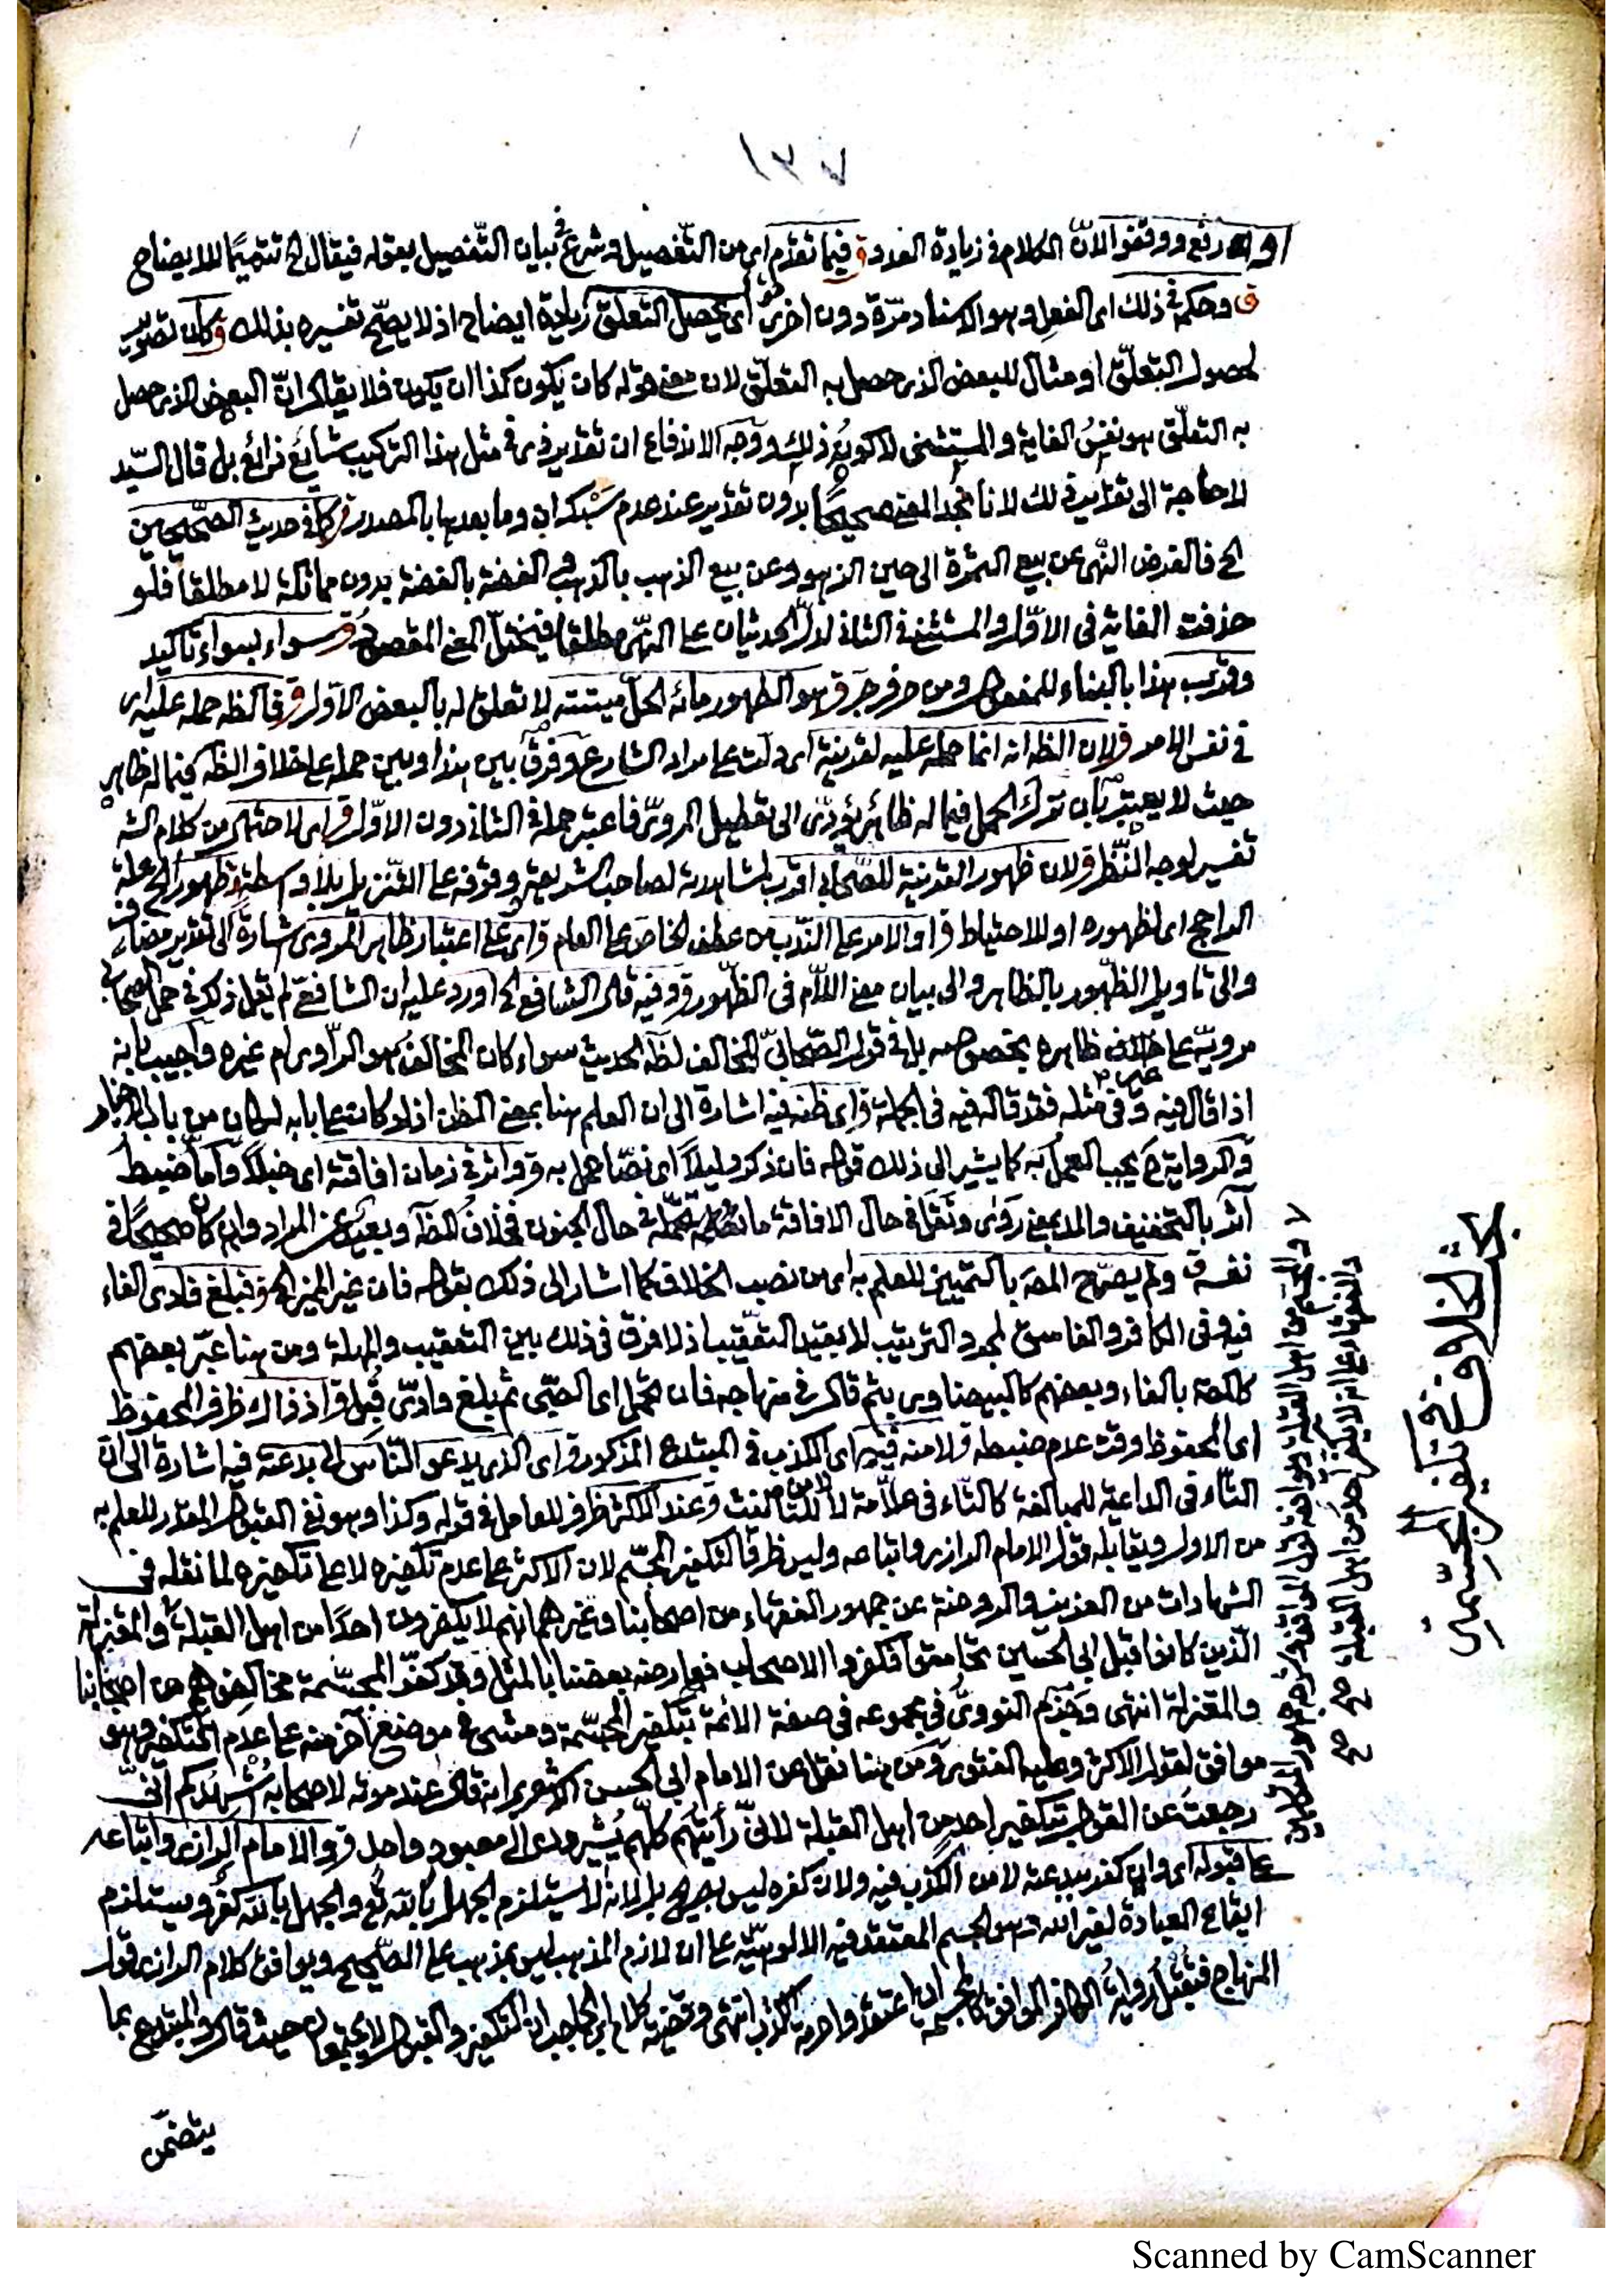 ١٣٧
رفع ووقف الان الكلام في زيادة العدد ق فيما تقدم اى من التفصيل وشرع في بيان التفصيل بقوله فيقال الخ تتميمًا للايضاح
ق وحكمه في ذلك اى الفعل وهو الاسناد مرّة دون اخرى اى يحصل التعلق زيادة ايضاح اذ لا يصحّ تفسيره بذلك ق كان تصوير
لحصول التعلّق او مثال للبعض الذى حصل به التعلّق لان معنى قوله كان يكون كذا ان يكون فلا يقال انّ البعض الذى حصل
به التعلّق هو نفسُ الغاية والمستثنى لا كونُ ذلك ووجه الاندفاع ان تقدير في مثل هذا التركيب شايع ذائع بل قال السّيد
لا حاجة الى تقدير ذلك لانا نجد المعنى صحيحًا بدون تقدير عند عدم سَبْك ان وما بعدها بالمصدر ق كما في حديث الصّحيحين
الخ فالغرض النّهى عن بيع الثمرة الى حين الزهو وعن بيع الذهب بالذهب والفضة بالفضة بدون مماثلة لا مطلقا فلو
حذفت الغاية فى الاوّل والمستثنى في الثانى لدلّ الحديثان على النّهى مطلقا فيختلّ المعنى المقصود ق سواء بسواء تاكيد
وقريب هذا بالبناء للمفعول ومن حرف جر ق هو الطهور مائه الحلّ ميتته لا تعلق له بالبعض الاوّل ق فالظه حمله عليه اى
فى نفس الامر ق لان الظه انه انما حمله عليه لقرينة اى دلت على مراد الشارع وفرق بين هذا وبين حمله على خلاف الظه فيما له ظاهر
حيث لا يعتبر بان ترك الحمل فيما له ظاهر يؤدّى الى تعطيل المروىّ فاعتبر حمله في الثانى دون الاوّل ق اى لاحتمال من كلام الشه
تفسير لوجه النّظر ق لان ظهور القرينة للصّحابى اقرب لمشاهدته لصاحب الشريعة ووقوفه على التنزيل بلا واسطة ق ظهور الخ علة
الراجح اى لظهوره او للاحتياط ق او الامر على النّدب من عطف الخاص على العام ق اى على اعتبار ظاهر المروى اشارة الى تقدير مضاف
والى تاويل الظّهور بالظاهر والى بيان معنى اللّام فى الظّهور ق وفيه قال الشافعى الخ اورد عليه ان الشافعىّ لم يقل ذلك في حمل الصّحابى
مرويّه على خلاف ظاهره بخصوصه بل في قول الصّحابىّ المخالف لظه الحديث سواء كان المخالف هو الراوى ام غيره واجيب بانه
اذا قال فيه في مثله فقد قاله فيه فى الجملة ق اى ظنه فيه اشارة الى ان العلم هنا بمعنى الظن اذ لو كان على بابه لكان من باب الاخبار
والرواية ح يجب العمل به كما يشير الى ذلك قوله فان ذكر دليلاً اى نصًّا عمل به ق واثر في زمان افاقته اى خبلاً وامّا ضبط
آثر بالتخفيف والمد بمعنى روى ونقل في حال الافاقة ما تحمّله في حال الجنون فخلاف الظه وبعيد عن المراد وان كان صحيحًا في
نفسه ق ولم يصرّح المصه بالتمييز للعلم به اى من نصب الخلاف كما اشار الى ذلك بقوله فان غير المميز الخ ق فبلغ فادى الفاء
فيه وفى الكافر والفاسق لمجرد الترتيب لا بقيد التعقيب اذ لا فرق فى ذلك بين التعقيب والمهلة ومن هنا عبّر بعضهم
كالمصه بالفاء وبعضهم كالبيضاوى بثم قال في منهاجه فان تحمّل اى الصّبى ثم بلغ وادّى قُبل ق اذ ذاك ظرف المحفوظ
اى المحفوظ وقت عدم ضبطه ق لامنه فيهما اى الكذب فى المبتدع المذكور ق اى الذى يدعو النّاس الى بدعته فيه اشارة الى ان
التّاء فى الداعية للمبالغة كالتّاء فى علاّمة لا للتّانيث ق عند الاكثر ظرف للعامل في قوله وكذا وهو نفى القبول المقدر للعلم به
من الاول ويقابله قول الامام الرازى واتباعه وليس ظرفا لتكفير المجسّم لان الاكثر على عدم تكفيره لا على تكفيره لما نقله فى
الشهادات من العزيز والروضة عن جمهور الفقهاء من اصحابنا وغيرهم انهم لا يكفرون احدًا من اهل القبلة والمعتزلة
الّذين كانوا قبل ابى الحسين تحامقوا فكفروا الاصحاب فعارضه بعضنا بالمثل وقد كفّر المجسّمة مخالفوهم من اصحابنا
والمعتزلة انتهى وجزم النووىّ في مجموعه فى صفة الائمة بتكفير المجسّمة ومشى في موضع آخر منه على عدم التكفير وهو
موافق لقول الاكثر وعليه الفتوى ومن هنا نقل عن الامام ابى الحسن الاشعرى انه قال عند موته لاصحابه أُشهدكم انّى
رجعتُ عن القول بتكفير احد من اهل القبلة لانّى رأيتهم كلّهم يُشيرون الى معبود واحد ق والامام الرازى واتباعه
على قبوله اى وان كفر ببدعته لامن الكذب فيه ولان كفره ليس بصريح بل لانه لاستلزم الجهل بالله تع والجهل بالله كفرٌ ويستلزم
ايقاع العبادة لغير الله وهو الجسم المعتقد فيه الالوهيّة على ان لازم المذهب ليس بمذهب على الصّحيح ويوافق كلام الرازى قول
المنهاج فتقبل رواية الكافر الموافق كالمجسمة ان اعتقدوا حرمة الكذب انتهى وقضيّة كلام ابن الحاجب ان التكفير والقبول لا يجتمعان حيث قال والمبتدع بما
يتضمّن
بحث الخلاف في تكفير المجسّمة